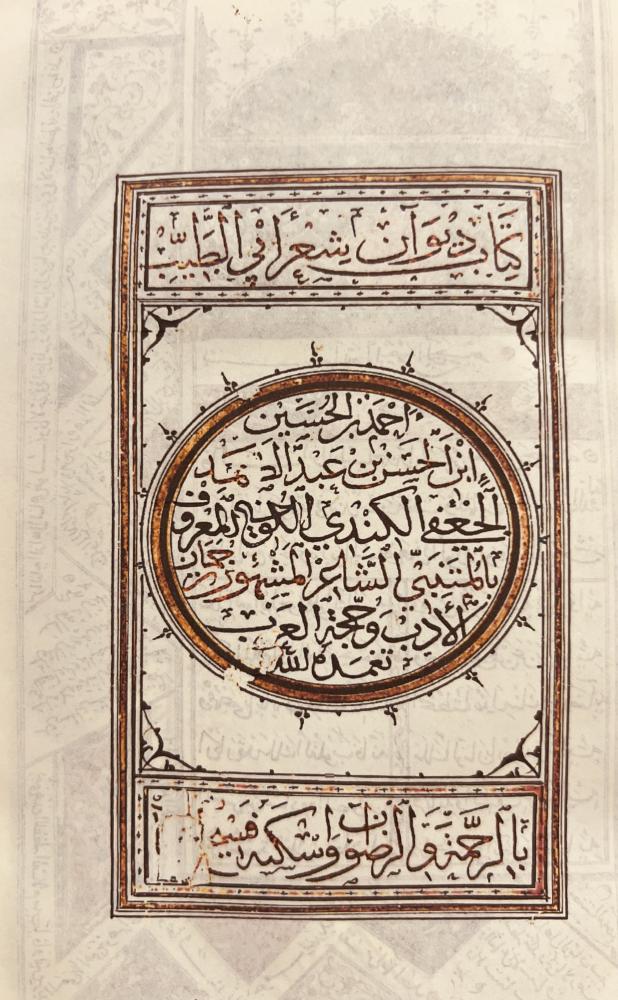 كتاب ديوان شعر أبي الطيب
أحمد بن الحسين
ابن الحسن بن عبد الصمد
الجعفي الكندي الكوفي المعروف
بالمتنبي الشاعر المشهور
الأدب وحجة العرب
تغمده الله
بالرحمة والرضوان وأسكنه فسيح